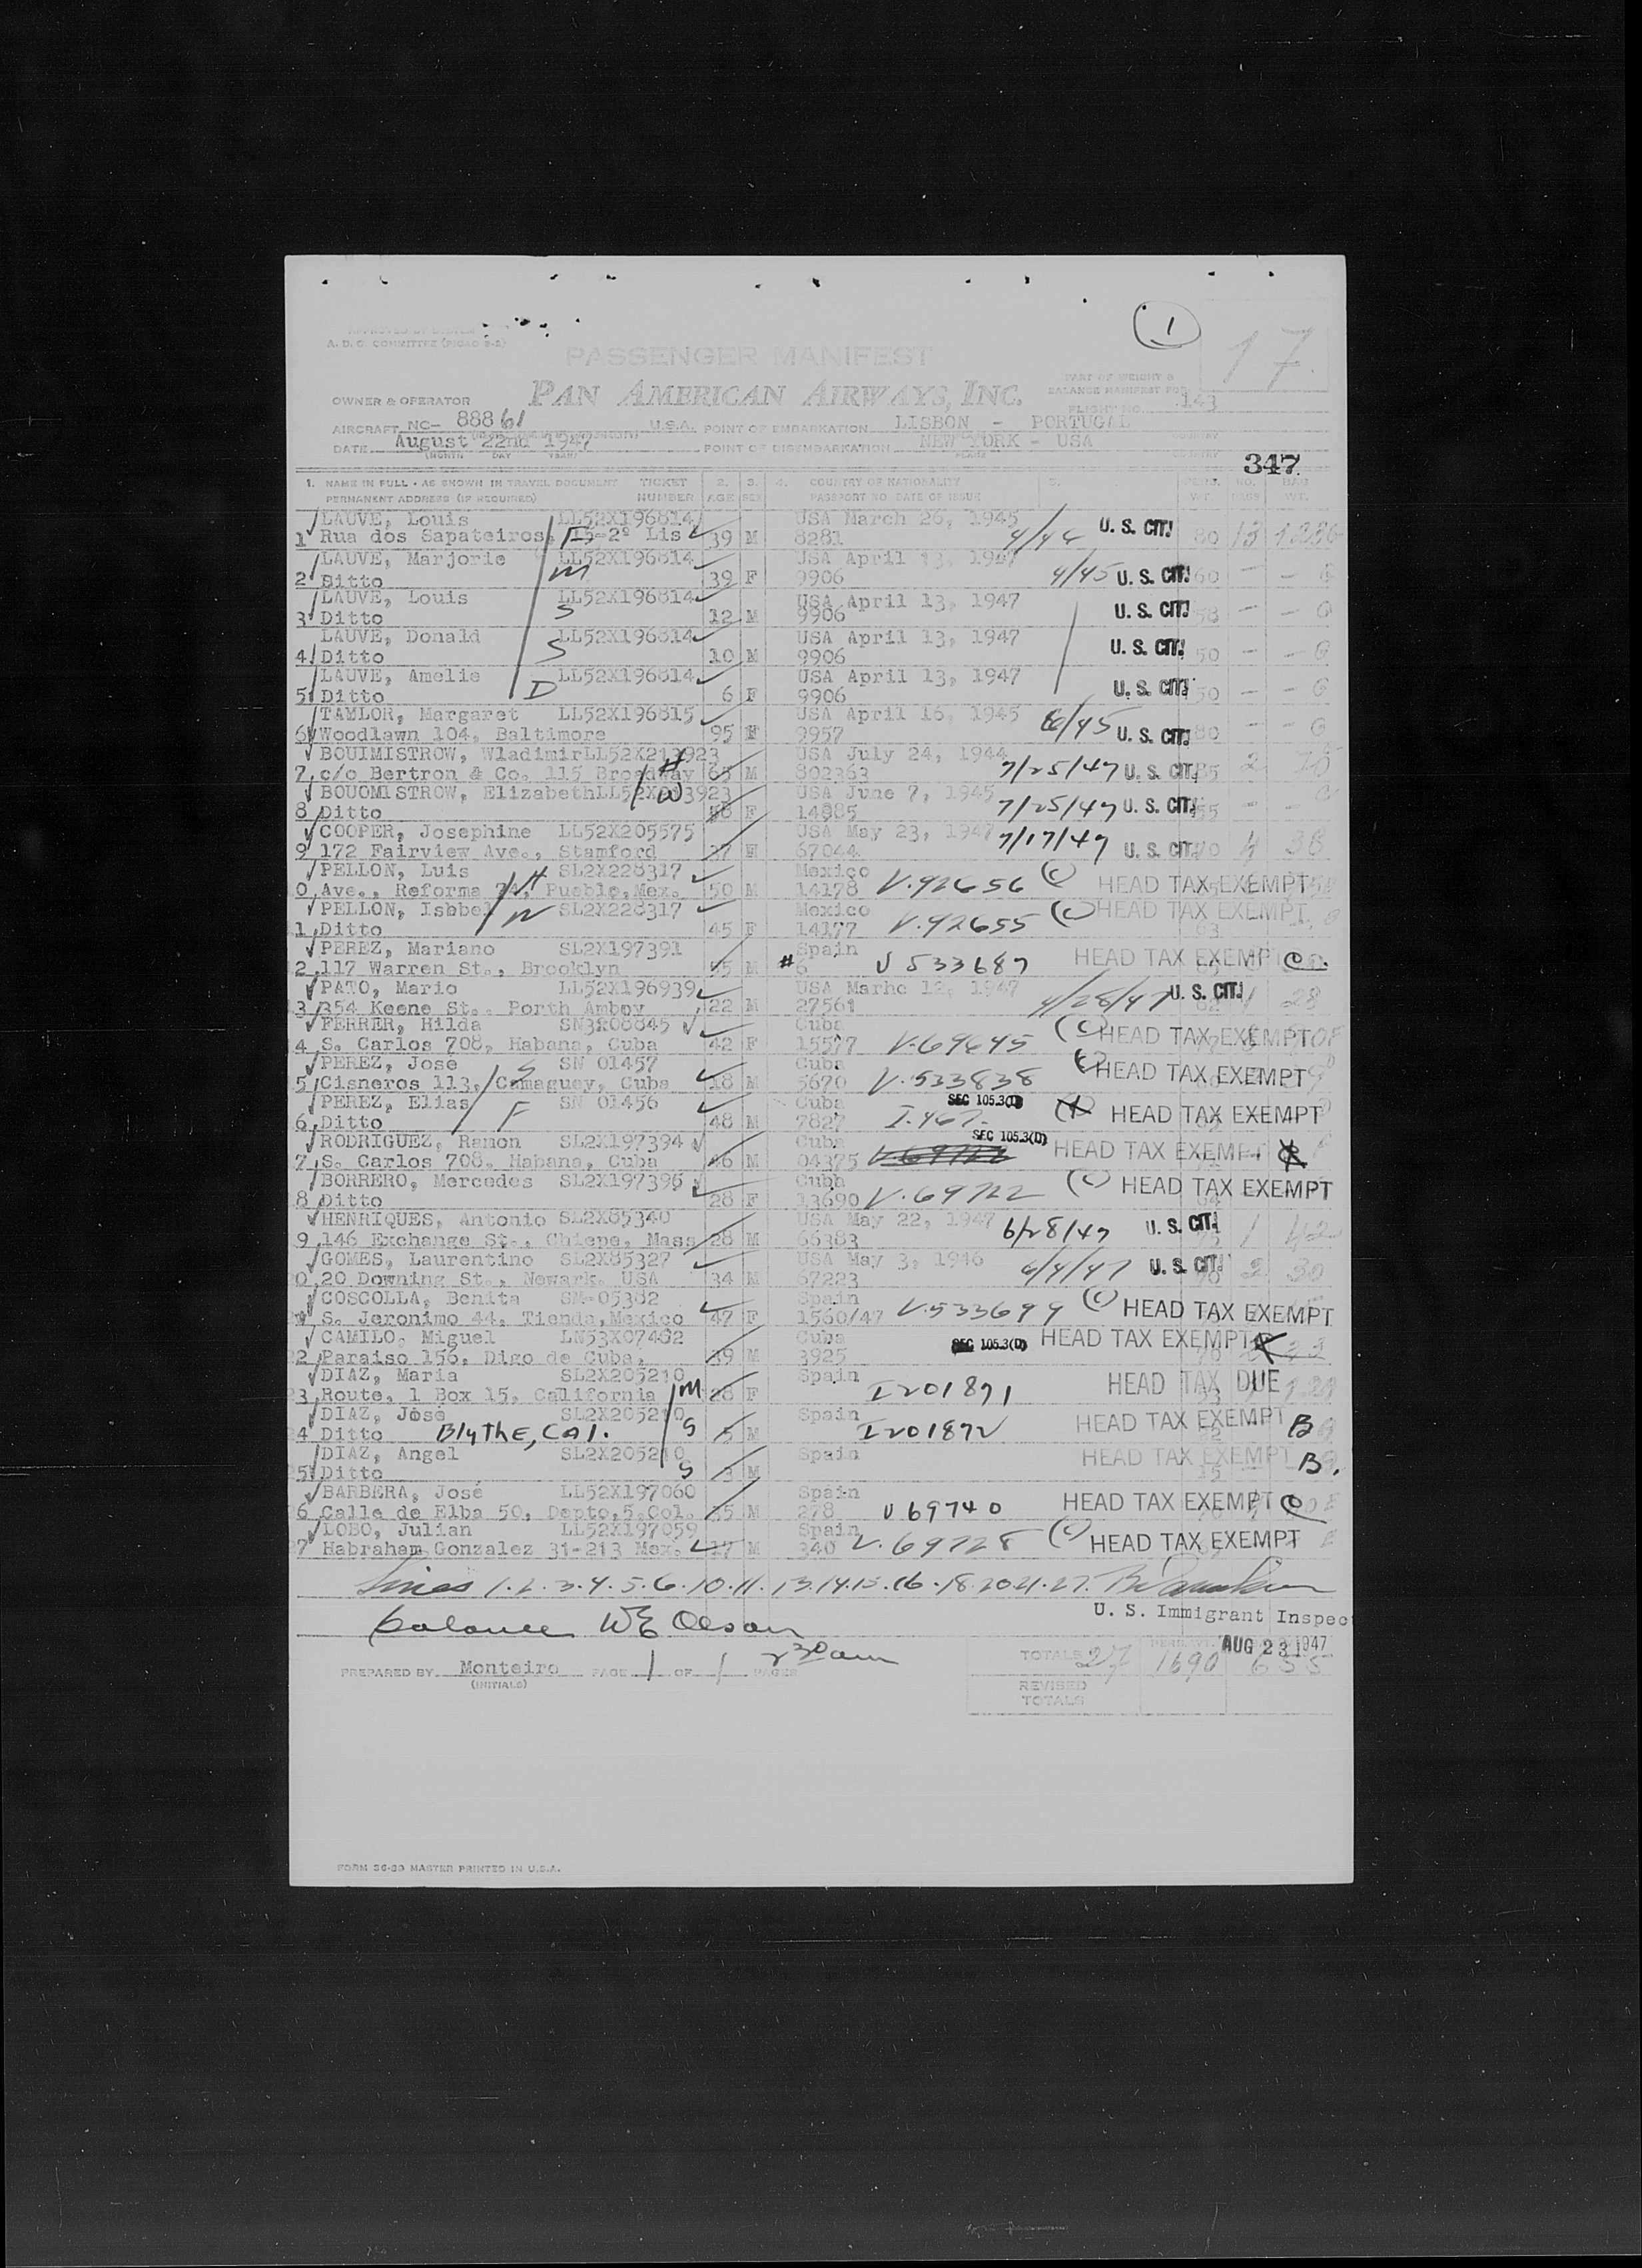 1
17.
A. D. C. COMMITTEE
PASSENGER MANIFEST
PAN AMERICAN AIRWAYS, INC.
PART OF WEIGHT &
BALANCE MANIFEST FOR
FLIGHT NO. 143
OWNER & OPERATOR
AIRCRAFT NC- 88861 U.S.A. POINT OF EMBARKATION LISBON - PORTUGAL
DATE August 22nd 1947 POINT OF DISEMBARKATION NEW YORK - USA
(MONTH DAY YEAR) PLACE COUNTRY
347
1. NAME IN FULL - AS SHOWN IN TRAVEL DOCUMENT TICKET 2. 3. 4. COUNTRY OF NATIONALITY 5. NO. BAG
PERMANENT ADDRESS (IF REQUIRED) NUMBER AGE SEX PASSPORT NO. DATE OF ISSUE WT. WT.
LAUVE, Louis LL52X196814 USA March 26, 1945
1 Rua dos Sapateiros, 15-2º Lis F 39 M 8281 U. S. CIT. 80 13
LAUVE, Marjorie LL52X196814 USA April 13, 1947
2 Ditto M 39 F 9906 4/45 U. S. CIT. 60 - -
LAUVE, Louis LL52X196814 USA April 13, 1947
3 Ditto S 12 M 9906 U. S. CIT. 58 - -
LAUVE, Donald LL52X196814 USA April 13, 1947
4 Ditto S 10 M 9906 U. S. CIT. 50 - -
LAUVE, Amelie LL52X196814 USA April 13, 1947
5 Ditto D 6 F 9906 U. S. CIT. 50 - -
TAYLOR, Margaret LL52X196815 USA April 16, 1945
6 Woodlawn 104, Baltimore 95 F 9957 6/45 U. S. CIT. 80 - -
BOUIMISTROW, Wladimir LL52X213923 USA July 24, 1944
7 c/o Bertron & Co. 115 Broadway H 65 M 802363 7/25/47 U. S. CIT. 85 2
BOUOMISTROW, Elizabeth LL52X213923 USA June 7, 1945
8 Ditto W 58 F 14885 7/25/47 U. S. CIT. 55 - -
COOPER, Josephine LL52X205575 USA May 23, 1947
9 172 Fairview Ave., Stamford 37 F 67044 7/17/47 U. S. CIT. 70 4 38
PELLON, Luis SL2X228317 Mexico
0 Ave., Reforma 74, Pueblo, Mex. H 50 M 14178 V.92656 (C) HEAD TAX EXEMPT
PELLON, Isbbel SL2X228317 Mexico
1 Ditto W 45 F 14177 V.92655 (C) HEAD TAX EXEMPT
PEREZ, Mariano SL2X197391 Spain
2 117 Warren St., Brooklyn 55 M #6 V 533687 HEAD TAX EXEMPT C.
PATO, Mario LL52X196939 USA Marhc 12, 1947
3 354 Keene St. Porth Amboy 22 M 27561 4/28/47 U. S. CIT. 1 28
FERRER, Hilda SN3R08845 Cuba
4 S. Carlos 708, Habana, Cuba 42 F 15577 V.69645 (C) HEAD TAX EXEMPT
PEREZ, José SN 01457 Cuba
5 Cisneros 113, Camaguey, Cuba S 18 M 5670 V.533838 (C) HEAD TAX EXEMPT
PEREZ, Elias SN 01456 Cuba SEC 105.3(D)
6 Ditto F 48 M 7827 I.467. HEAD TAX EXEMPT
RODRIGUEZ, Ramon SL2X197394 Cuba SEC 105.3(D)
7 S. Carlos 708, Habana, Cuba 46 M 04375 V.69722 HEAD TAX EXEMPT
BORRERO, Mercedes SL2X197396 Cuba
8 Ditto 28 F 13690 V.69722 (C) HEAD TAX EXEMPT
HENRIQUES, Antonio SL2X85340 USA May 22, 1947
9 146 Exchange St., Chiepe, Mass 28 M 66383 6/28/47 U. S. CIT. 1 42
GOMES, Laurentino SL2X85327 USA May 3, 1946
0 20 Downing St., Newark, USA 34 M 67223 6/4/47 U. S. CIT. 2 30
COSCOLLA, Benita SM-05382 Spain
S. Jeronimo 44, Tienda, Mexico 47 F 1560/47 V.533699 (C) HEAD TAX EXEMPT
CAMILO, Miguel LN53X07482 Cuba
2 Paraiso 156, Digo de Cuba, 39 M 3925 SEC 105.3(D) HEAD TAX EXEMPT
DIAZ, Maria SL2X205210 Spain
23 Route, 1 Box 15, California M 28 F I201871 HEAD TAX DUE
DIAZ, José SL2X205210 Spain
24 Ditto Blythe, Cal. S 5 M I201872 HEAD TAX EXEMPT B
DIAZ, Angel SL2X205210 Spain
25 Ditto S 3 M HEAD TAX EXEMPT B.
BARBERA, José LL52X197060 Spain
6 Calle de Elba 50, Depto,5,Col. 35 M 278 V 69740 HEAD TAX EXEMPT C
LOBO, Julian LL52X197059 Spain
7 Habraham Gonzalez 31-213 Mex. 17 M 340 V.69728 (C) HEAD TAX EXEMPT
Lines 1.2.3.4.5.6.10.11.13.14.15.16.18.20.21.27.
U. S. Immigrant Inspec
balance WE Olson
2 30 am
AUG 23 1947
PREPARED BY Monteiro PAGE 1 OF 1 PAGES
(INITIALS)
TOTALS 27 1690 655
REVISED
TOTALS
FORM 36-83 MASTER PRINTED IN U.S.A.